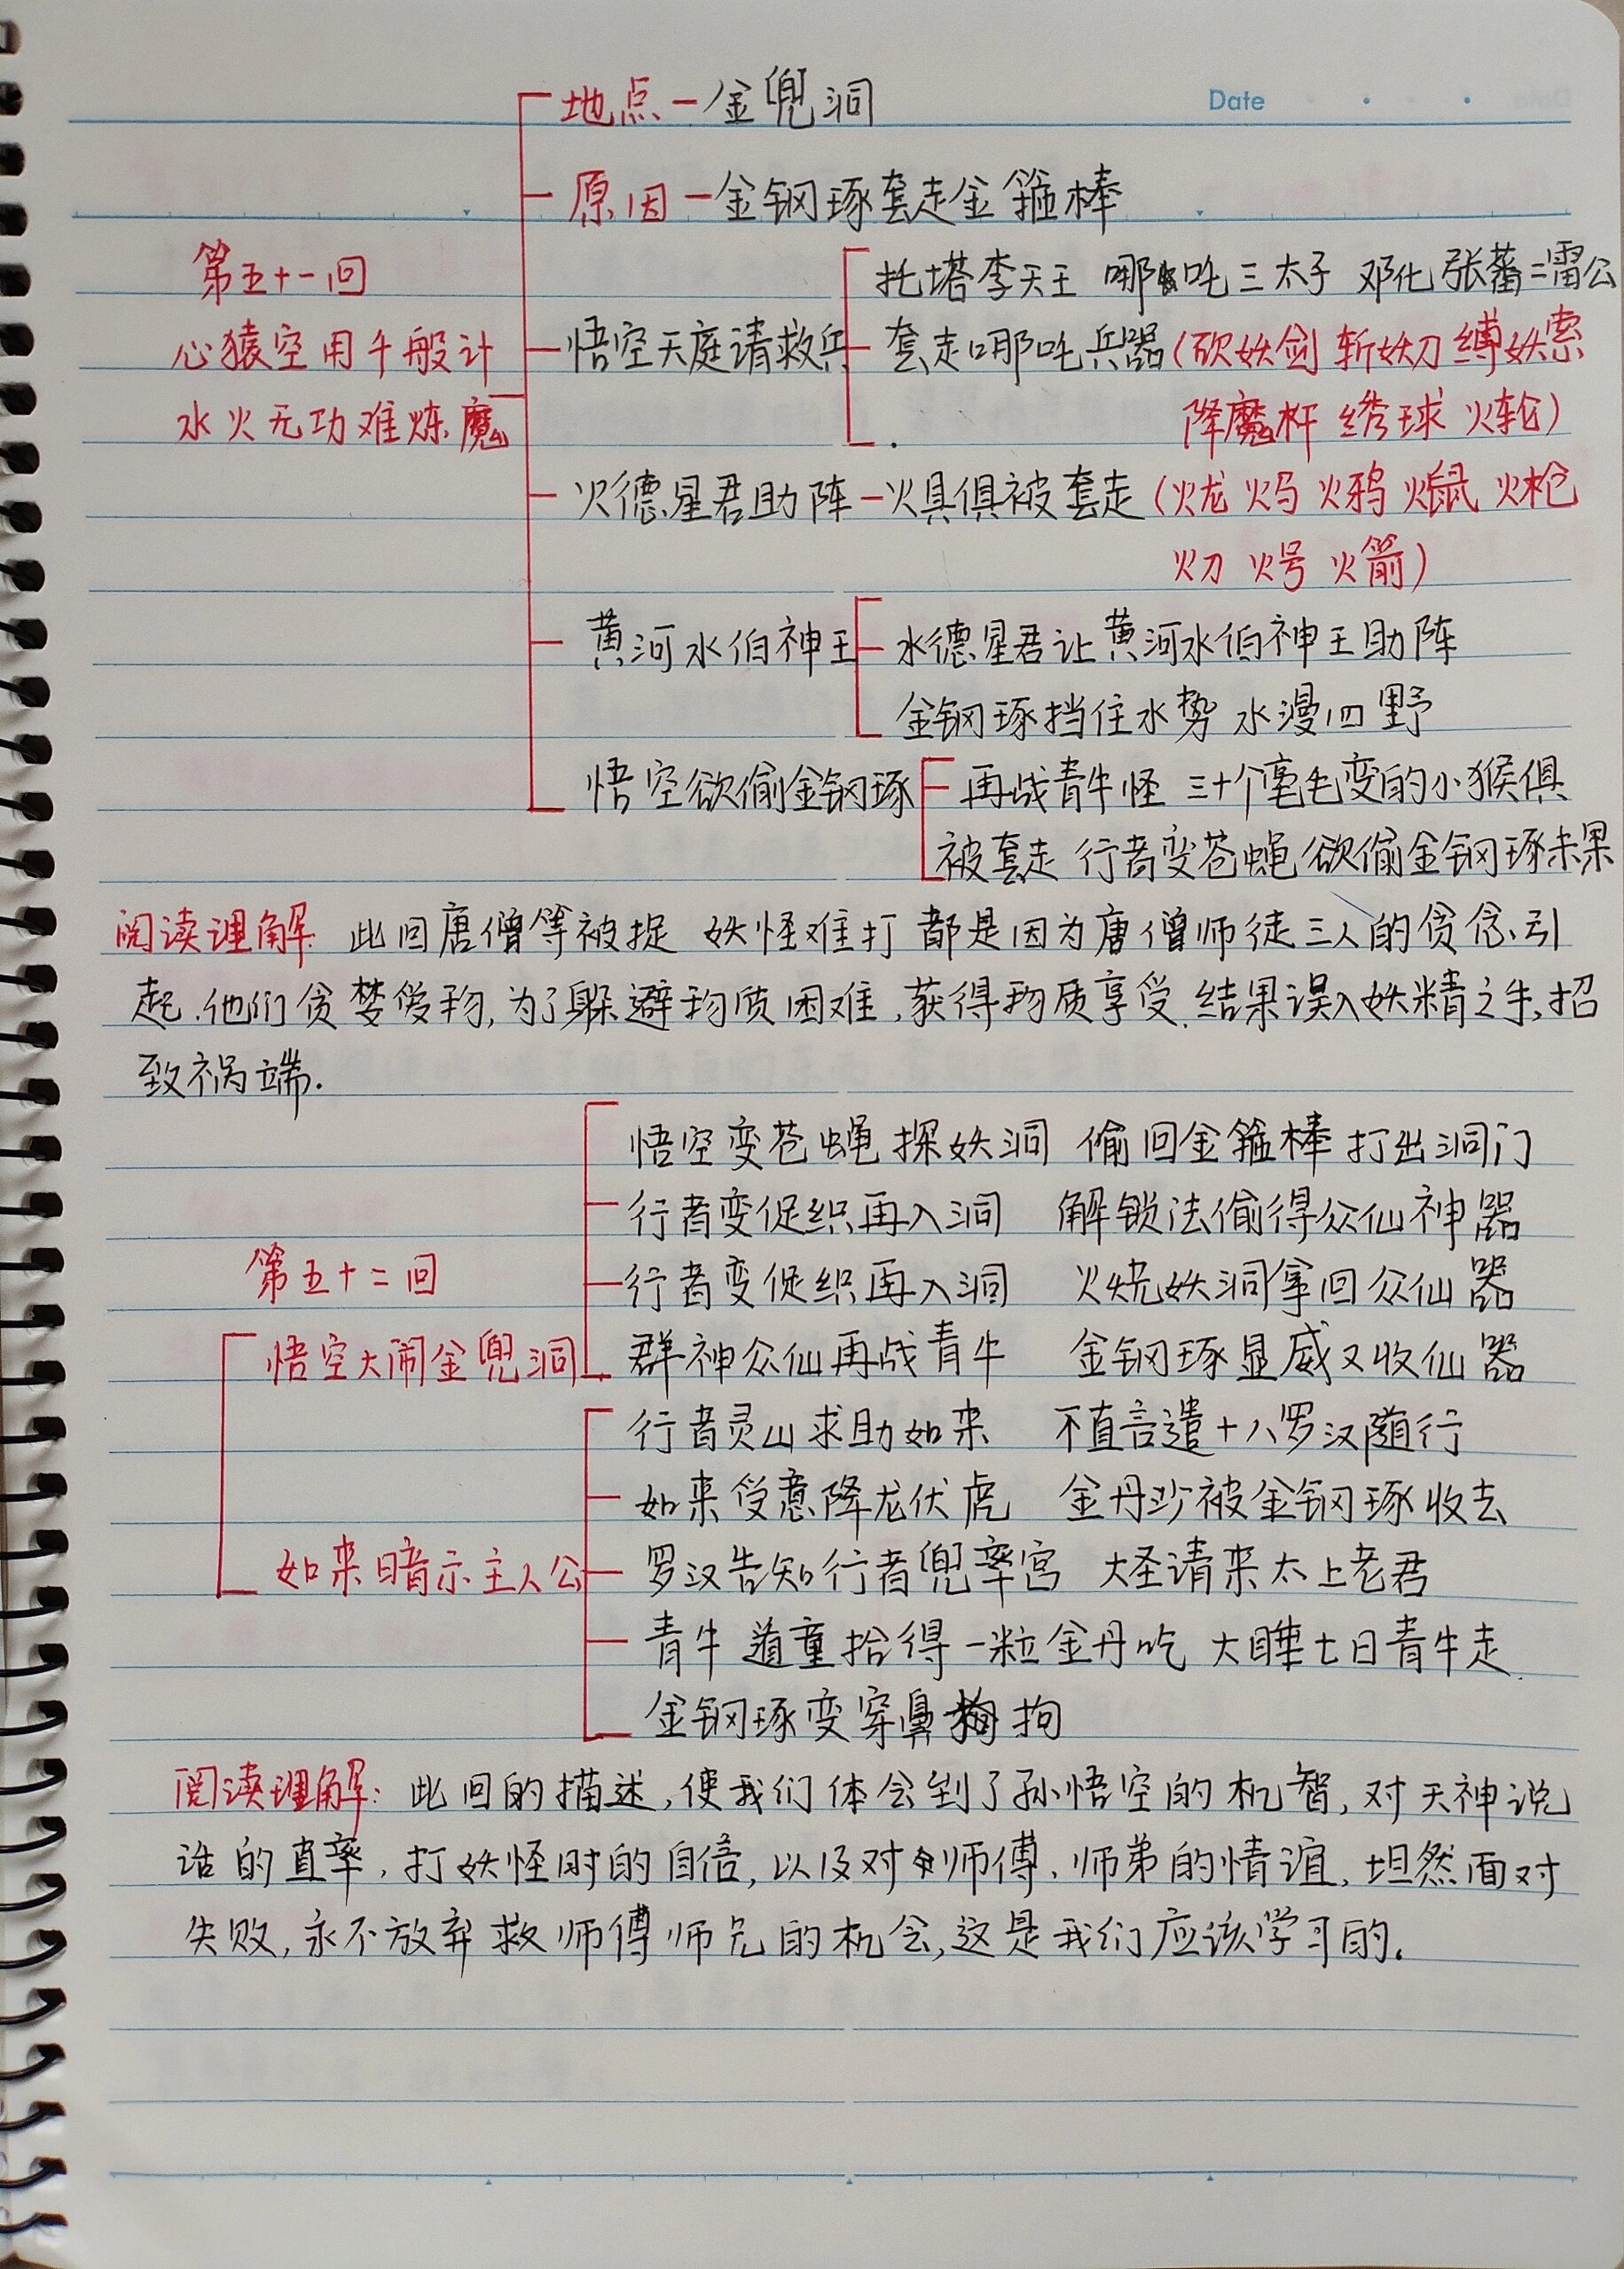 Date
地点－金兜洞
原因－金钢琢套走金箍棒
第五十一回
心猿空用千般计
水火无功难炼魔
托塔李天王 哪吒三太子 邓化张蕃二雷公
悟空天庭请救兵
套走哪吒兵器(砍妖剑 斩妖刀 缚妖索
降魔杆 绣球 火轮)
火德星君助阵－火具俱被套走(火龙 火马 火鸦 火鼠 火枪
火刀 火号 火箭)
黄河水伯神王
水德星君让黄河水伯神王助阵
金钢琢挡住水势 水漫四野
悟空欲偷金钢琢
再战青牛怪 三十个毫毛变的小猴俱
被套走 行者变苍蝇欲偷金钢琢未果
阅读理解: 此回唐僧等被捉 妖怪难打 都是因为唐僧师徒三人的贪念引
起.他们贪婪爱物,为了躲避物质困难,获得物质享受.结果误入妖精之手,招
致祸端.
悟空变苍蝇探妖洞 偷回金箍棒打出洞门
行者变促织再入洞 解锁法偷得众仙神器
第五十二回
行者变促织再入洞 火烧妖洞拿回众仙器
悟空大闹金兜洞
群神众仙再战青牛 金钢琢显威又收仙器
行者灵山求助如来 不直言遣十八罗汉随行
如来受意降龙伏虎 金丹沙被金钢琢收去
如来暗示主人公
罗汉告知行者兜率宫 大圣请来太上老君
青牛道童拾得一粒金丹吃 大睡七日青牛走
金钢琢变穿鼻拘
阅读理解: 此回的描述,使我们体会到了孙悟空的机智,对天神说
话的直率,打妖怪时的自信,以及对师傅、师弟的情谊,坦然面对
失败,永不放弃救师傅师兄的机会,这是我们应该学习的.